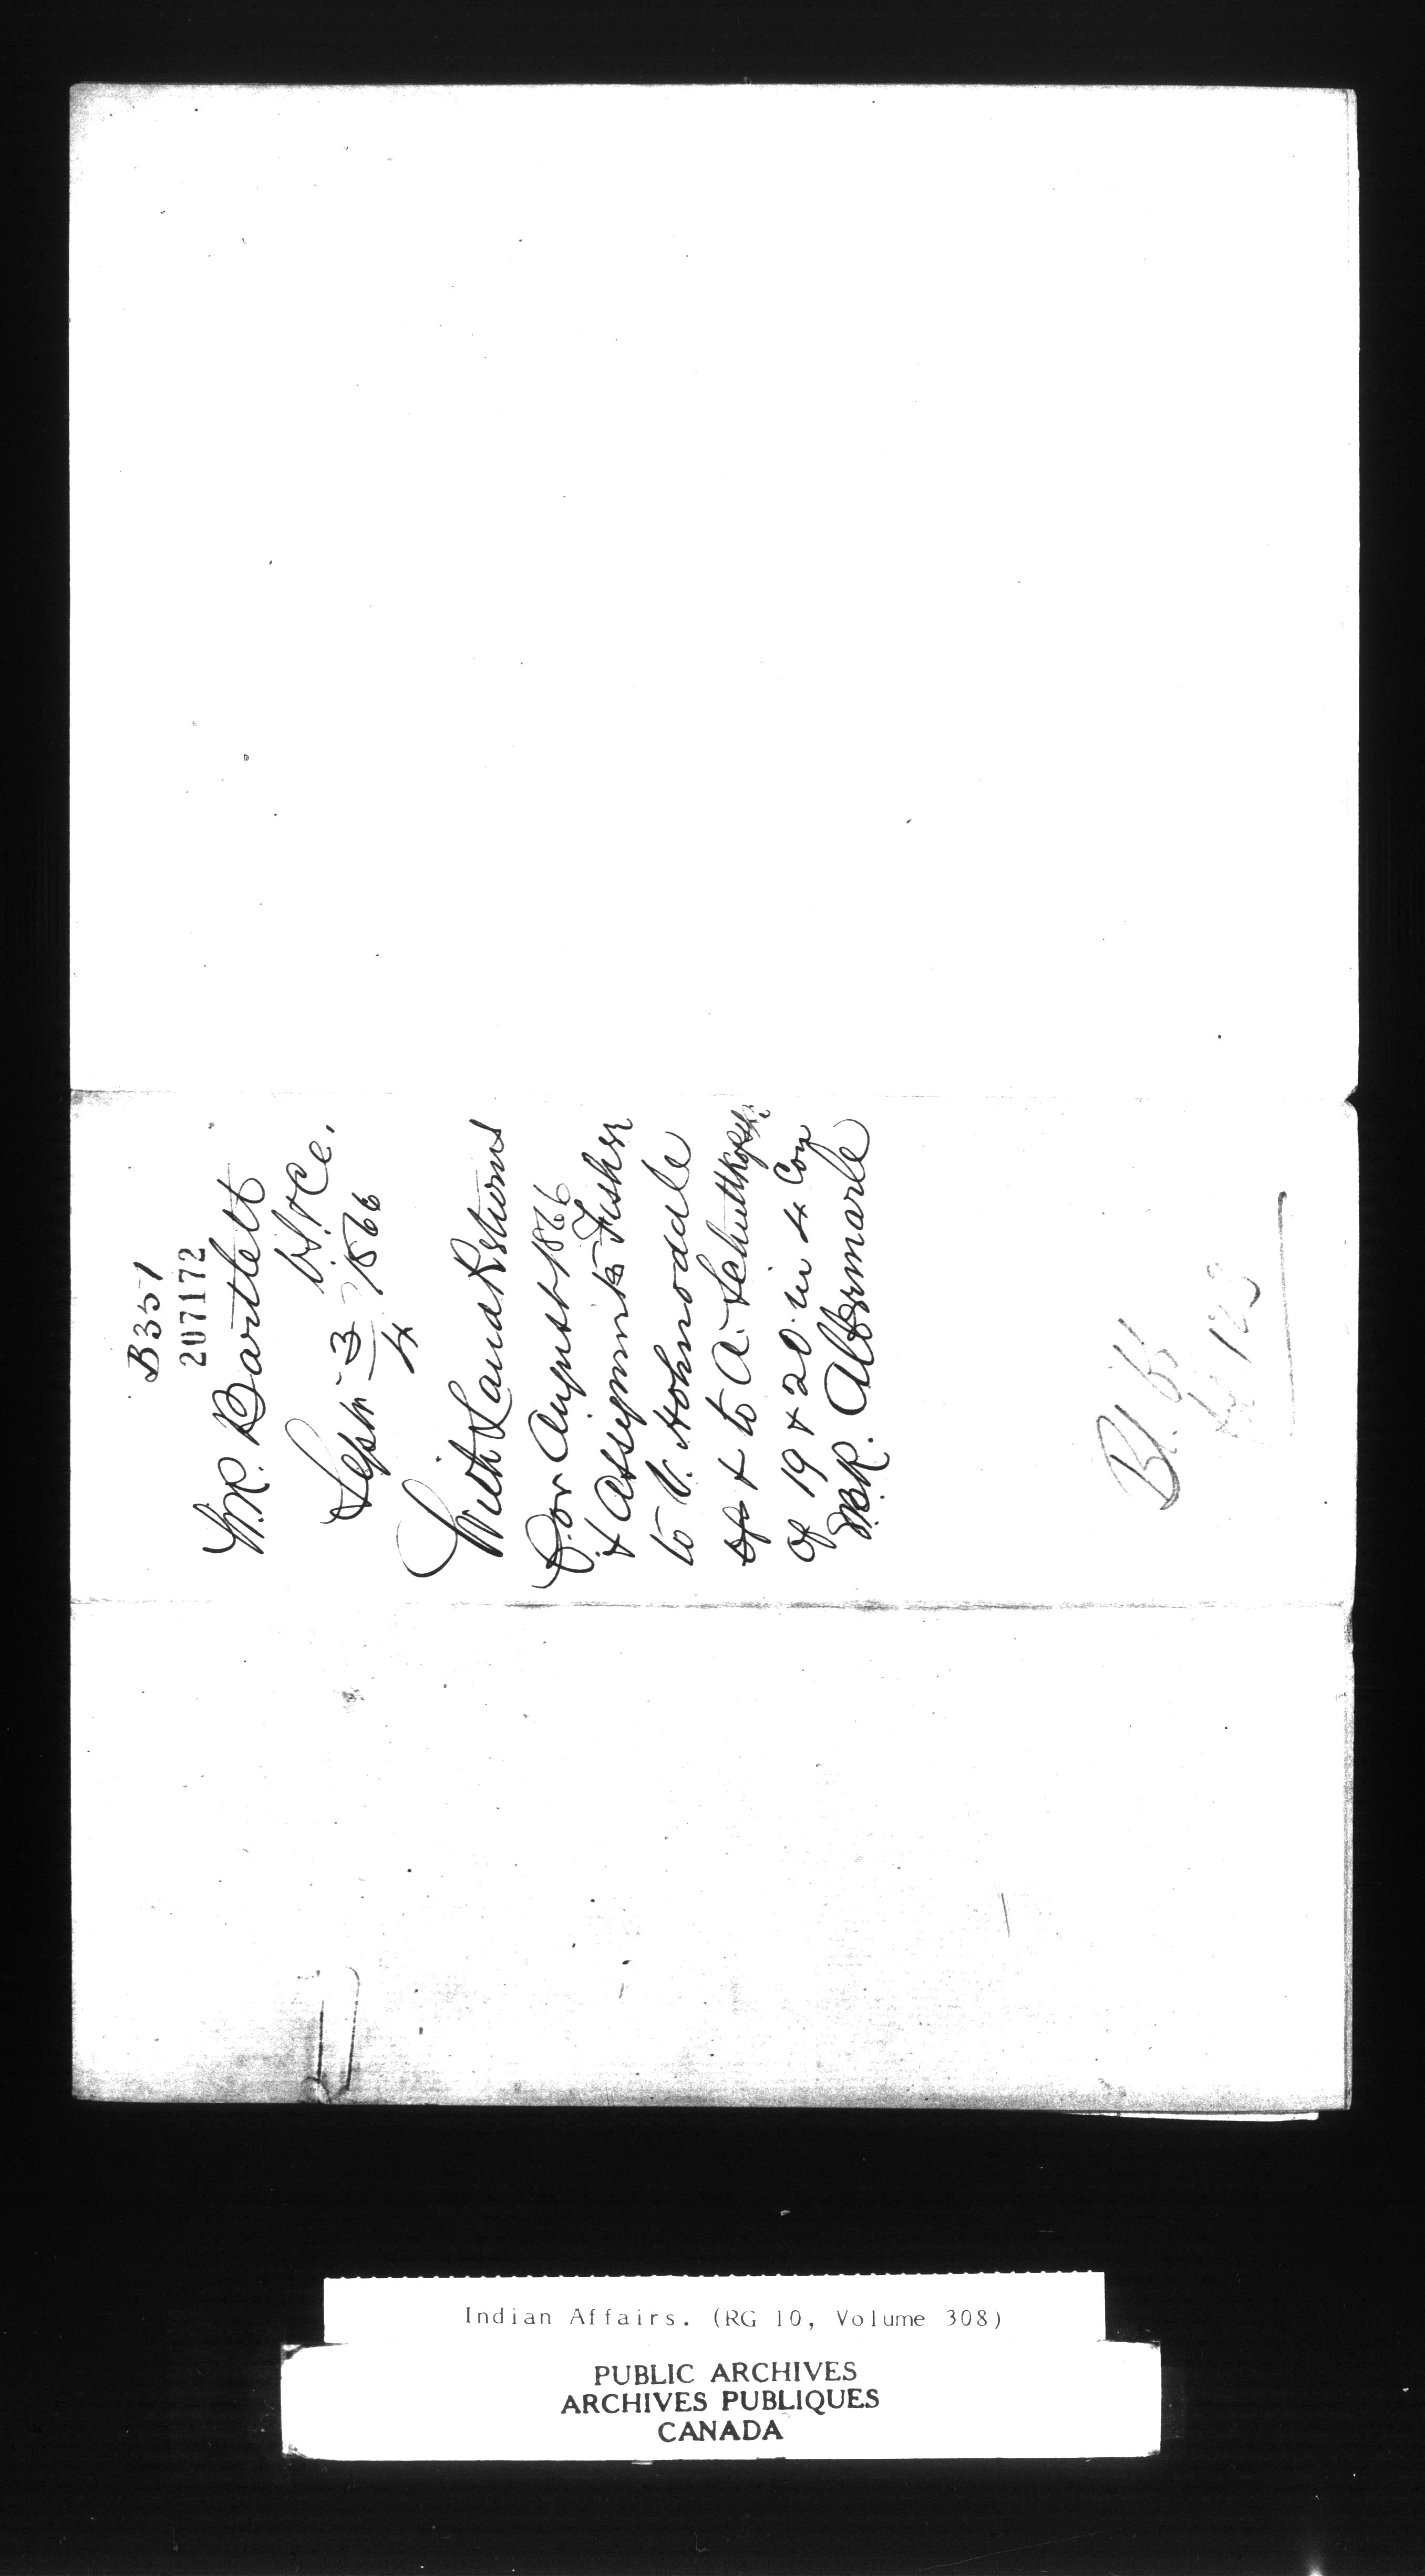 B357
207172
W.R. Bartlett
V.S. & Ce.
Septr 3/4 1866
With Land Returns
for August 1866
& Assignmts Fisher
to V. Hohnodle
& to A. Schuttkopf
of 19 & 20 in 4 Con
E.B.R. Albermarle
Bl. B
123
Indian Affairs. (RG 10, Volume 308)
PUBLIC ARCHIVES
ARCHIVES PUBLIQUES
CANADA